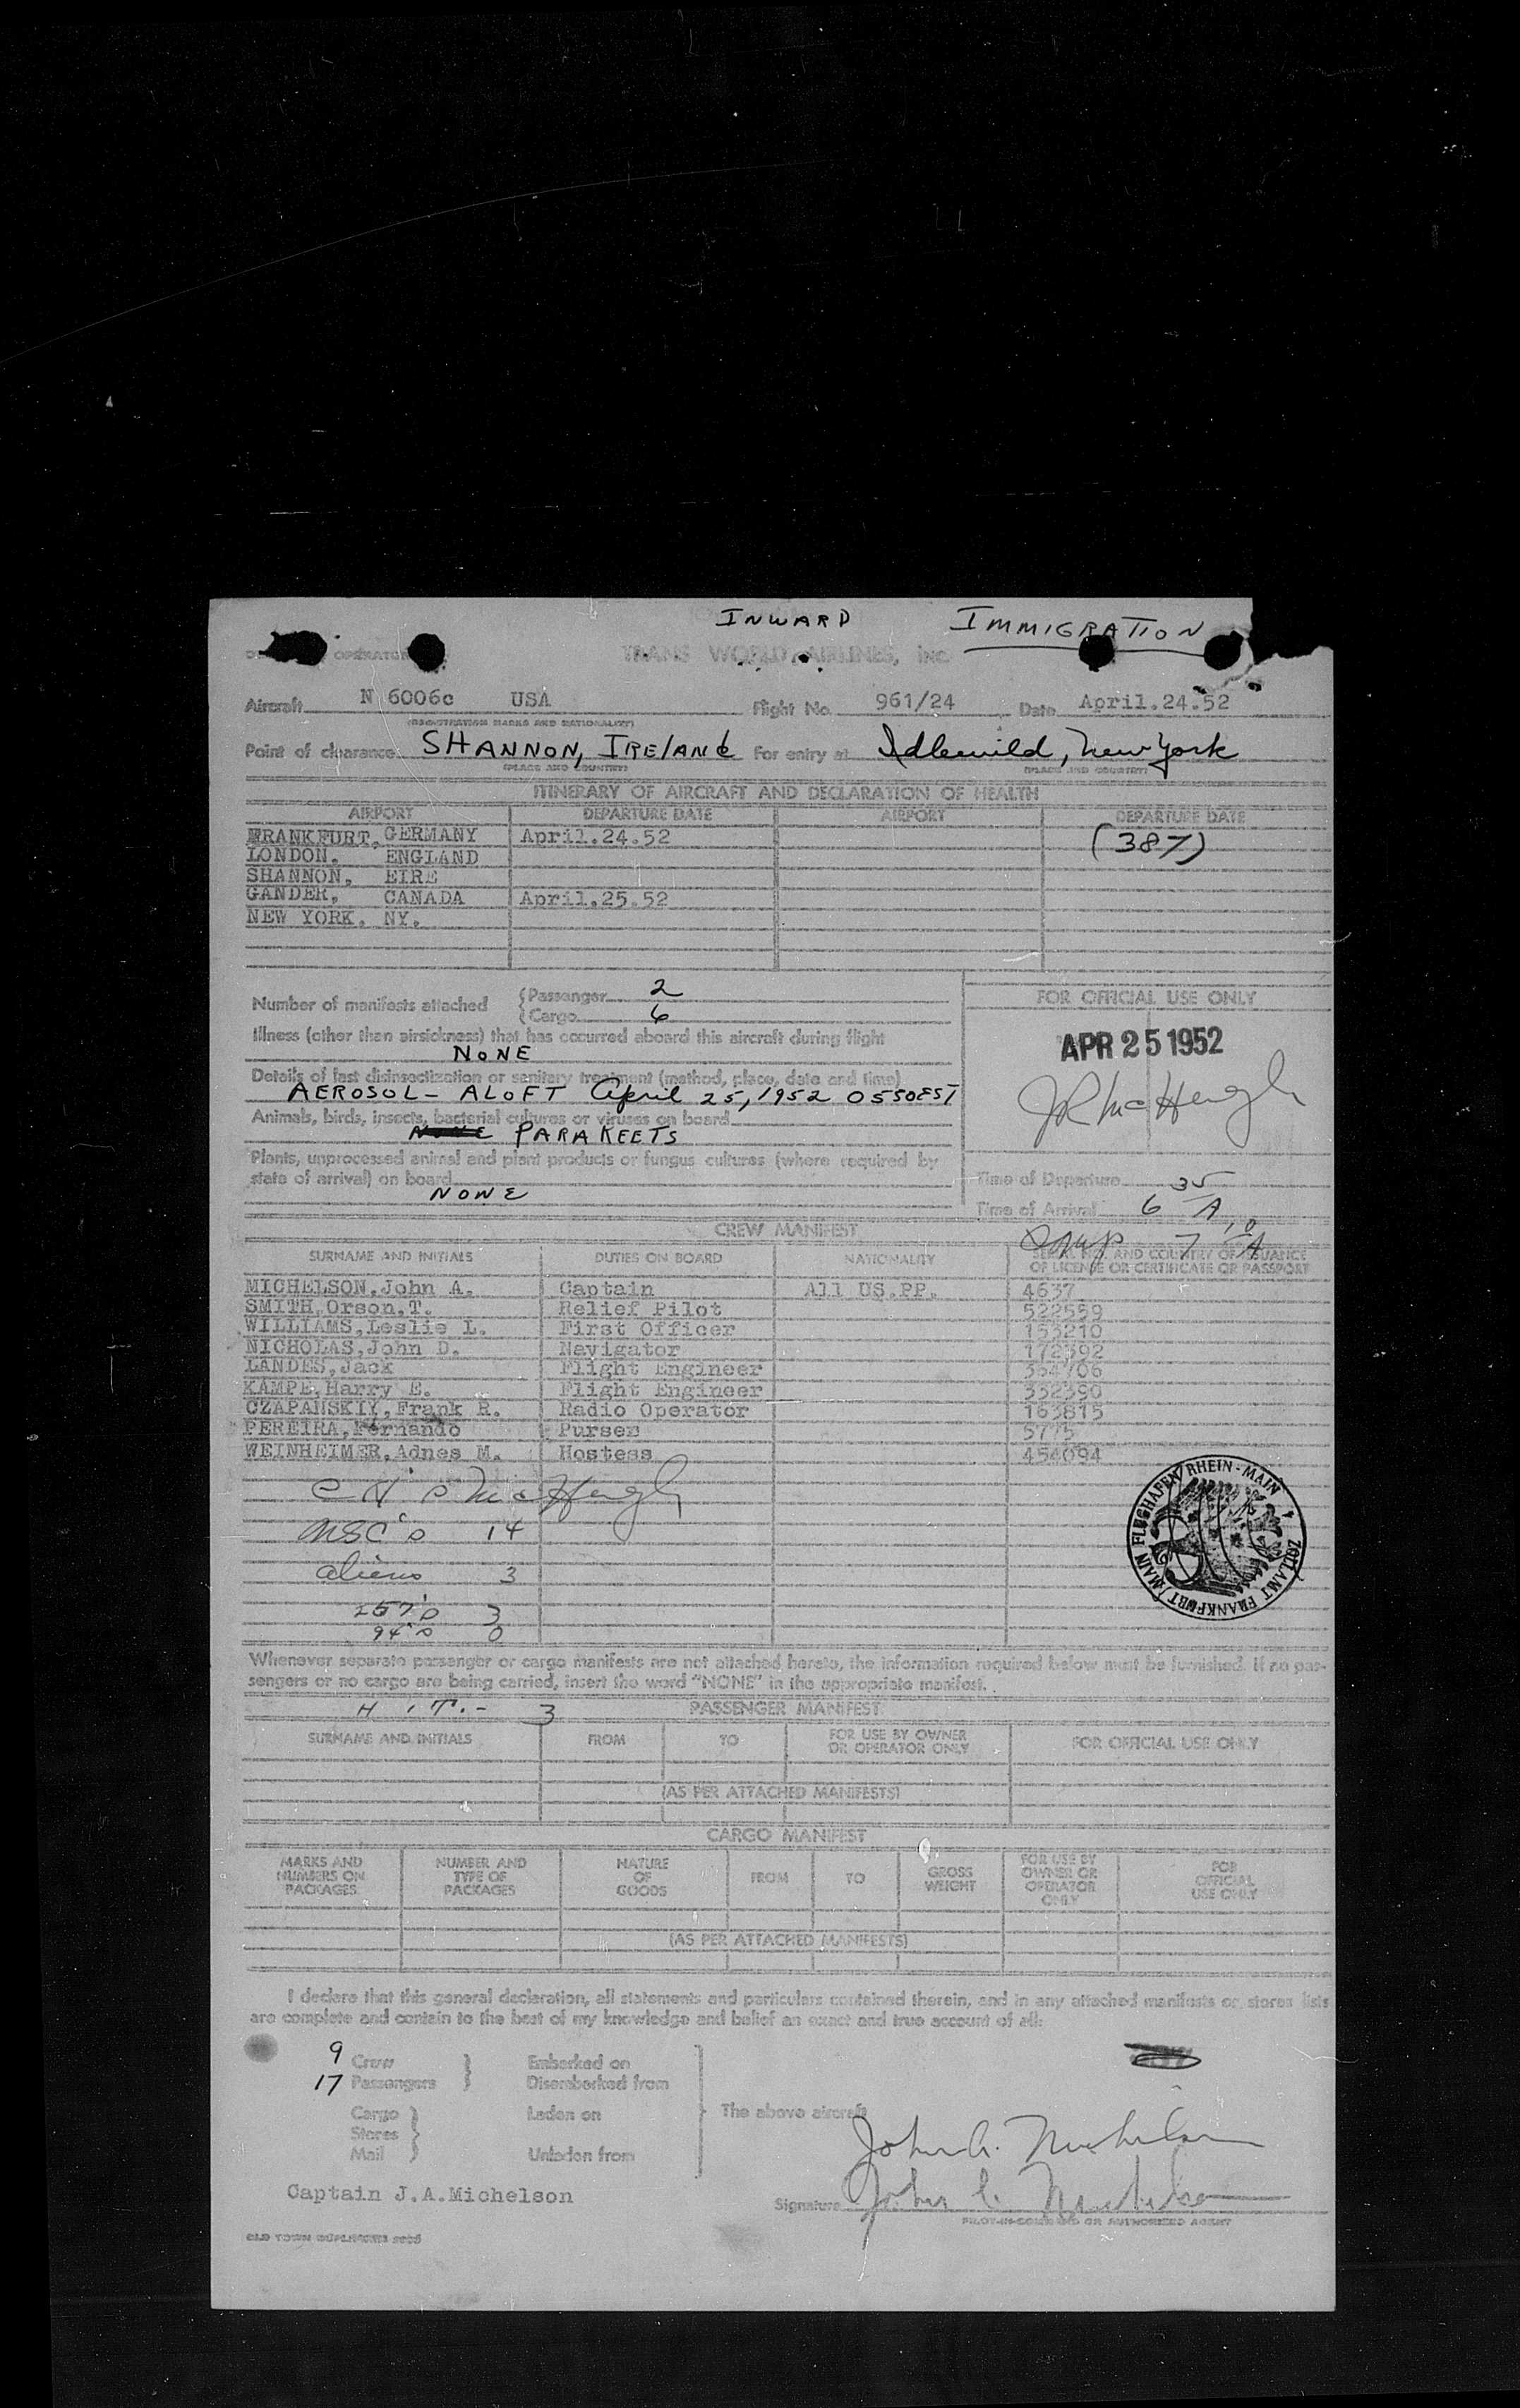 INWARD IMMIGRATION
OPERATOR
TRANS WORLD AIRLINES, INC.
Aircraft N 6006c USA Flight No. 961/24 Date April.24.52
(REGISTRATION MARKS AND NATIONALITY)
Point of clearance SHANNON, IRELAND For entry at Idlewild, New York
(PLACE AND COUNTRY) (PLACE AND COUNTRY)
ITINERARY OF AIRCRAFT AND DECLARATION OF HEALTH
AIRPORT DEPARTURE DATE AIRPORT DEPARTURE DATE
FRANKFURT, GERMANY April.24.52 (387)
LONDON, ENGLAND
SHANNON, EIRE
GANDER, CANADA April.25.52
NEW YORK. NY.
Number of manifests attached { Passenger 2
{ Cargo 6
FOR OFFICIAL USE ONLY
Illness (other than airsickness) that has occurred aboard this aircraft during flight
NONE
APR 25 1952
Details of last disinsectization or sanitary treatment (method, place, date and time)
AEROSOL - ALOFT April 25, 1952 0550EST
JR McHugh
Animals, birds, insects, bacterial cultures or viruses on board
NONE PARAKEETS
Plants, unprocessed animal and plant products or fungus cultures (where required by
state of arrival) on board
NONE
Time of Departure
Time of Arrival 6 35 A
7 10 A
CREW MANIFEST
SURNAME AND INITIALS DUTIES ON BOARD NATIONALITY SERIAL NO. AND COUNTRY OF ISSUANCE
OF LICENSE OR CERTIFICATE OR PASSPORT
MICHELSON,John A. Captain All US.PP. 4637
SMITH,Orson.T. Relief Pilot 522559
WILLIAMS,Leslie L. First Officer 153210
NICHOLAS,John D. Navigator 172392
LANDES,Jack Flight Engineer 364706
KAMPE,Harry E. Flight Engineer 332390
CZAPANSKIY,Frank R. Radio Operator 163815
PEREIRA,Fernando Purser 5775
WEINHEIMER,Adnes M. Hostess 454094
McHugh
USC's 14
aliens 3
257's 3
94's 0
FLUGHAFEN RHEIN-MAIN
ZOLLAMT FRANKFURT/MAIN
Whenever separate passenger or cargo manifests are not attached hereto, the information required below must be furnished. If no pas-
sengers or no cargo are being carried, insert the word "NONE" in the appropriate manifest.
H.T.- 3 PASSENGER MANIFEST
SURNAME AND INITIALS FROM TO FOR USE BY OWNER
OR OPERATOR ONLY FOR OFFICIAL USE ONLY
(AS PER ATTACHED MANIFESTS)
CARGO MANIFEST
MARKS AND
NUMBERS ON
PACKAGES NUMBER AND
TYPE OF
PACKAGES NATURE
OF
GOODS FROM TO GROSS
WEIGHT FOR USE BY
OWNER OR
OPERATOR
ONLY FOR
OFFICIAL
USE ONLY
(AS PER ATTACHED MANIFESTS)
I declare that this general declaration, all statements and particulars contained therein, and in any attached manifests or stores lists
are complete and contain to the best of my knowledge and belief an exact and true account of all:
9 Crew } Embarked on
17 Passengers } Disembarked from
Cargo } Laden on } The above aircraft
Stores }
Mail } Unladen from
John A. Michelson
Captain J.A.Michelson
Signature John A. Michelson
PILOT-IN-COMMAND OR AUTHORIZED AGENT